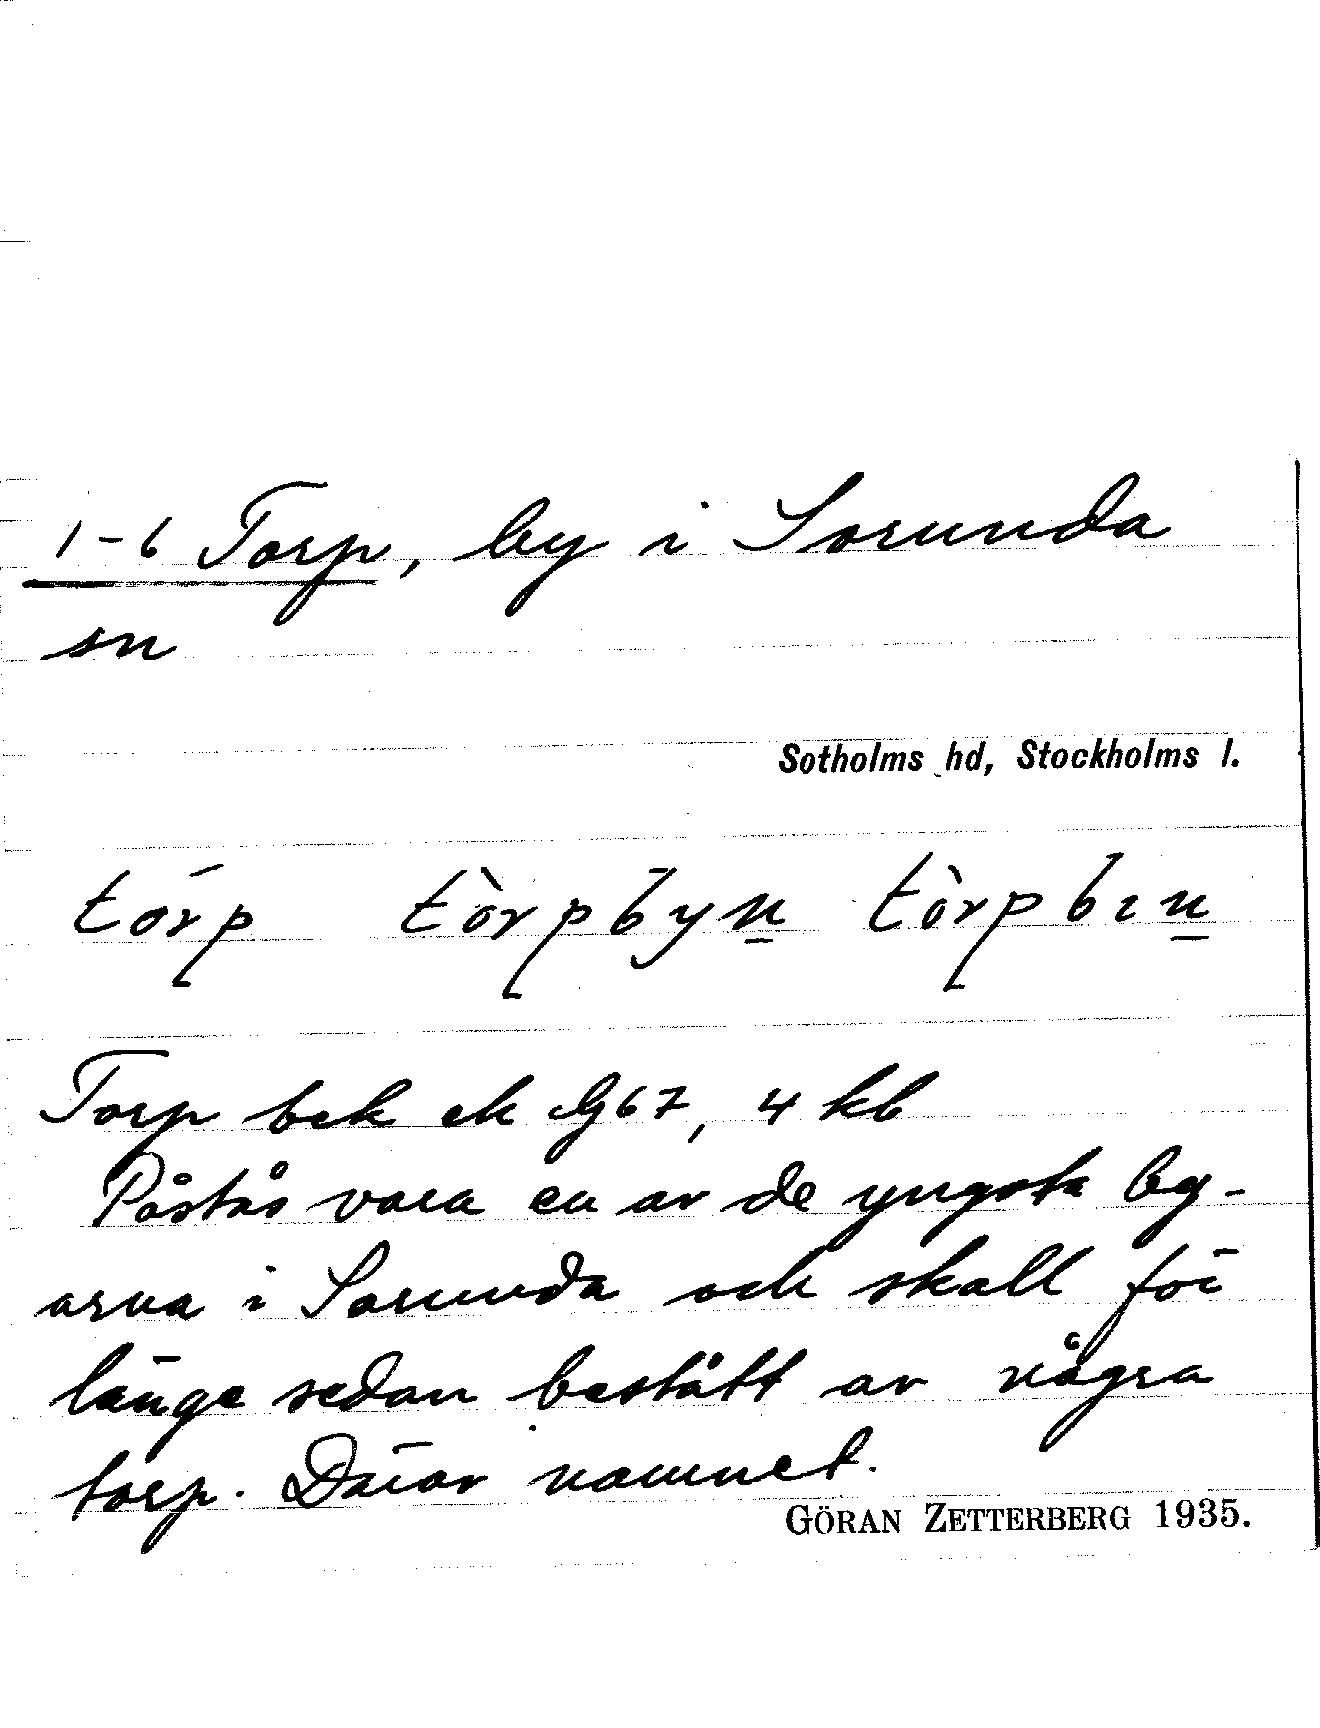 1-6 Torp, by i Sorunda
sn
Sotholms hd, Stockholms l.
tórp tòrpbyn̲ tòrpbɪn̲
Torp bek ek G67, 4 kb
Påstås vara en av de yngsta by-
arna i Sorunda och skall för
länge sedan bestått av några
torp. Därav namnet.
GÖRAN ZETTERBERG 1935.